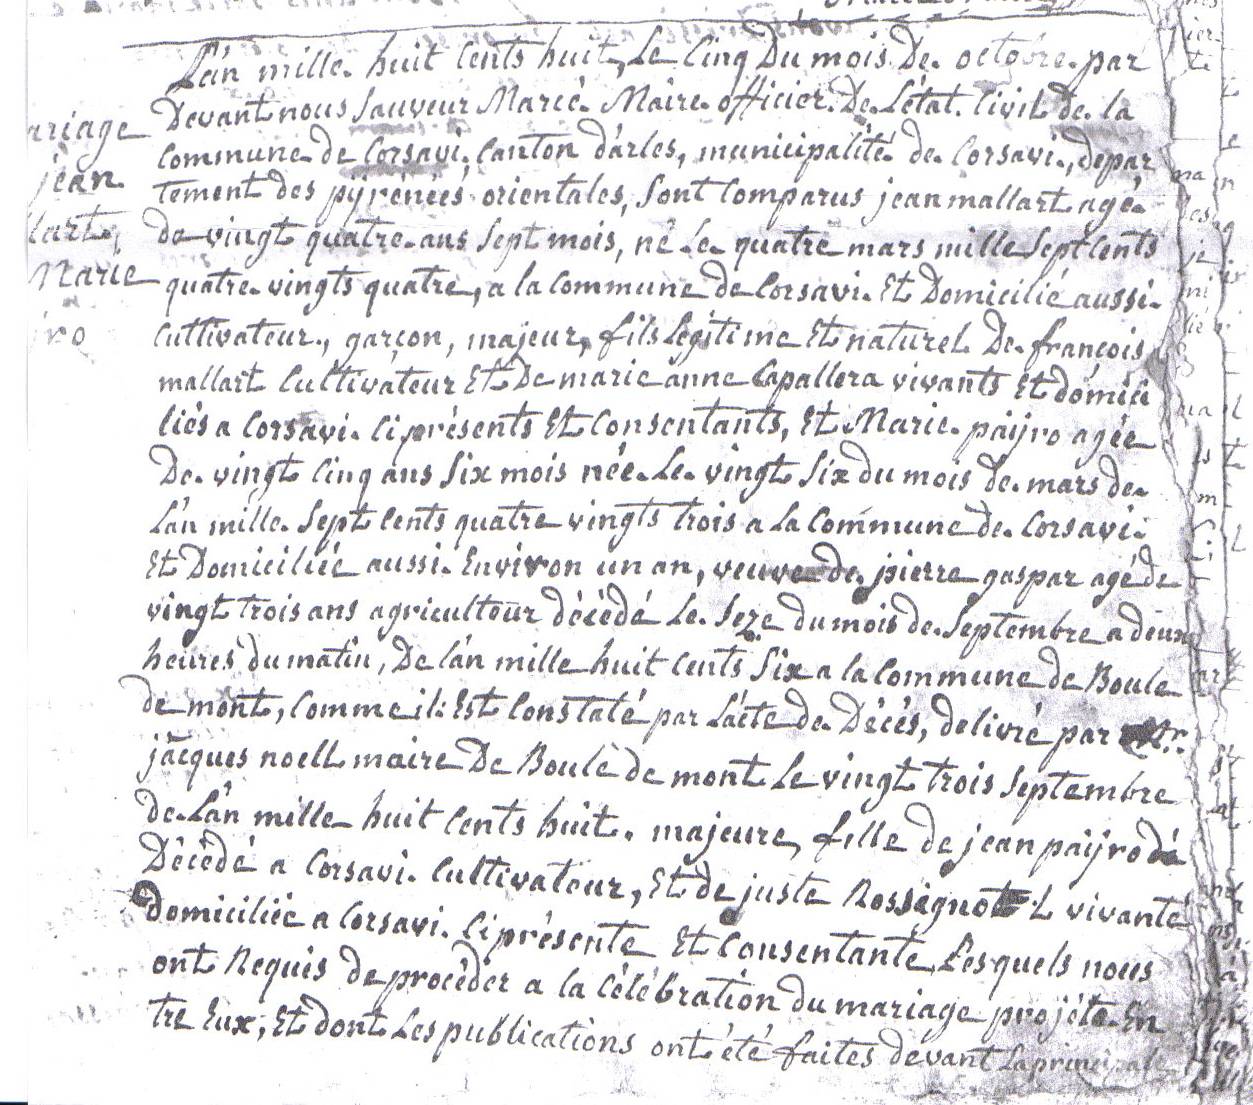 L'an mille huit cents huit, Le Cinq Du mois De octobre par
Devant nous Sauveur Marcé Maire officier De L'état Civil de la
ariage
commune de Corsavi, Canton d'arles, municipalité de Corsavi, depar
jean
tement des pyrénées orientales, Sont Comparus jean mallart agé
lart,
de vingt quatre ans Sept mois, né Le quatre mars mille Sept Cents
Marie
quatre vingts quatre, a la Commune de Corsavi Et Domicilié aussi
iro
Cultivateur, garçon, majeur, fils Légitime Et naturel De françois
mallart Cultivateur Et De marie anne Capallera vivants Et domici
liés a Corsavi Ci présents Et Consentants, Et Marie paijro agée
De vingt Cinq ans Six mois née Le vingt Six du mois de mars de
L'an mille Sept Cents quatre vingts trois a La Commune de Corsavi
Et Domiciliée aussi Environ un an, veuve de pierre gaspar agé de
vingt trois ans agriculteur décédé Le Seze du mois de Septembre a deux
heures du matin, De l'an mille huit Cents Six a la Commune de Boule
de mont, Comme il Est Constaté par L'acte de Décés, delivré par mr
jacques noell maire De Boule de mont Le vingt trois Septembre
de L'an mille huit Cents huit. majeure, fille de jean paijro dé
Décédé a Corsavi Cultivateur, Et de juste Rossignol L vivante
domiciliée a Corsavi Ci présente Et Consentante, Lesquels nous
ont Requis de procéder a la Célébration du mariage projété En
tre Eux, Et dont Les publications ont été faites devant La principale